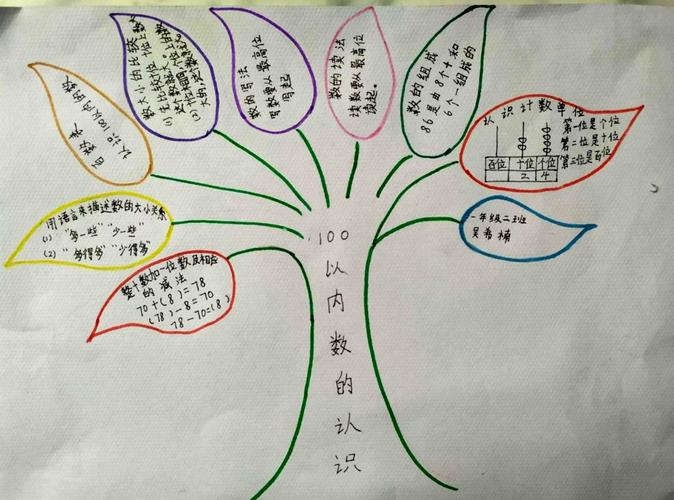 100
以
内
数
的
认
识
整十数加一位数及相应
的减法
70+(8)=78
(78)-8=70
78-70=(8)
用语言来描述数的大小关系
(1) "多一些" "少一些"
(2) "多得多" "少得多"
数大小的比较
数的写法
写数要从最高位
写起
数的读法
读数要从最高位
读起。
数的组成
86是由8个十和
6个一组成的
认识计数单位
第一位是个位
第二位是十位
第三位是百位
百位 十位 个位
2 4
一年级二班
吴希楠